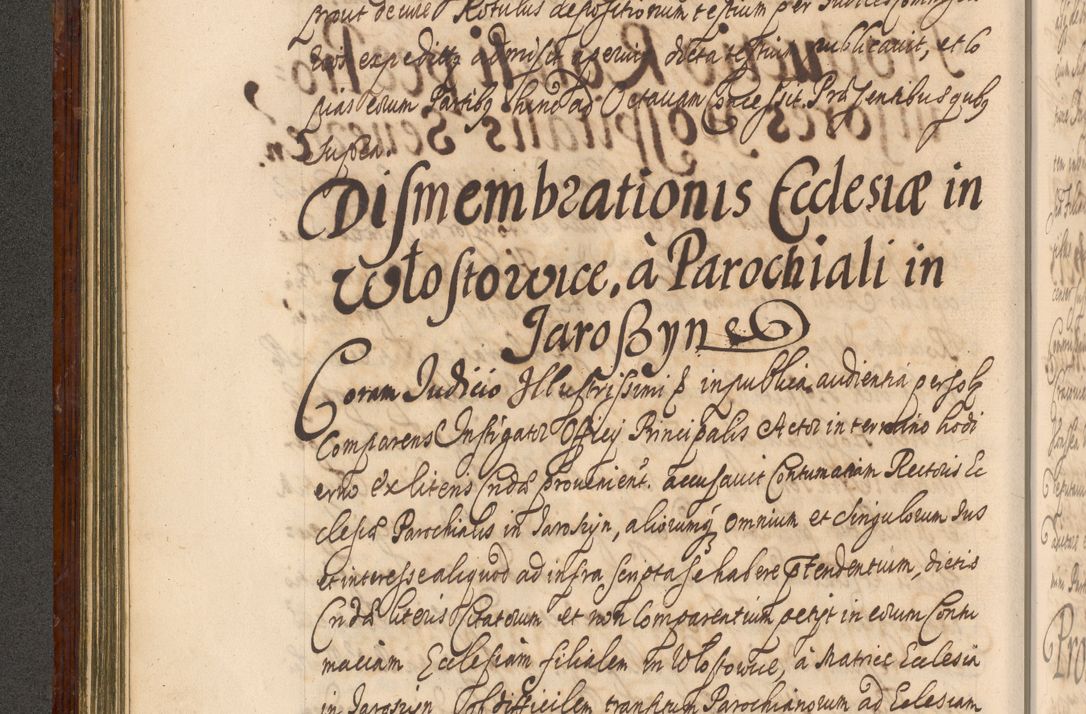 prout de iure Rotulus depositionum testium per
dios expeditus admisit aperuit dicta testium publicauit, et co
pias eorum Partibus hinc ad Octauam Concessit. Præsentibus quibus
supra.
Dismembrationis Ecclesiæ in
Włostowice, à Parochiali in
Jaroszyn
Coram Judicio Illustrissimi &c in publica audientia persolr
Comparens Instigator Officij Principalis Actor in termino hodi
erno ex litens Cndæ prouenient. accusauit Contumatiam Rectoris Ec
clesiæ Parochialis in Jaroszyn, aliorumq omnium et singulorum Jus
et interesse aliquod ad infra scripta se habere ptendentium, dictis
Cndæ literis Citatorum et non Comparentium petijt in eorum Contu
maciam Ecclesiam filialem in Włostowice, à Matrice Ecclesia
in Jaroszyn ob difficilem transitum Parochianorum ad Eclesiam